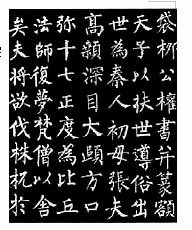 袋柳公權書并篆額
天子以扶世導俗出
世為秦人初母張夫
高顙深目大頤方口
弥十七正度為比丘
法師復夢梵僧以舍
矣夫將欲伐株杌於